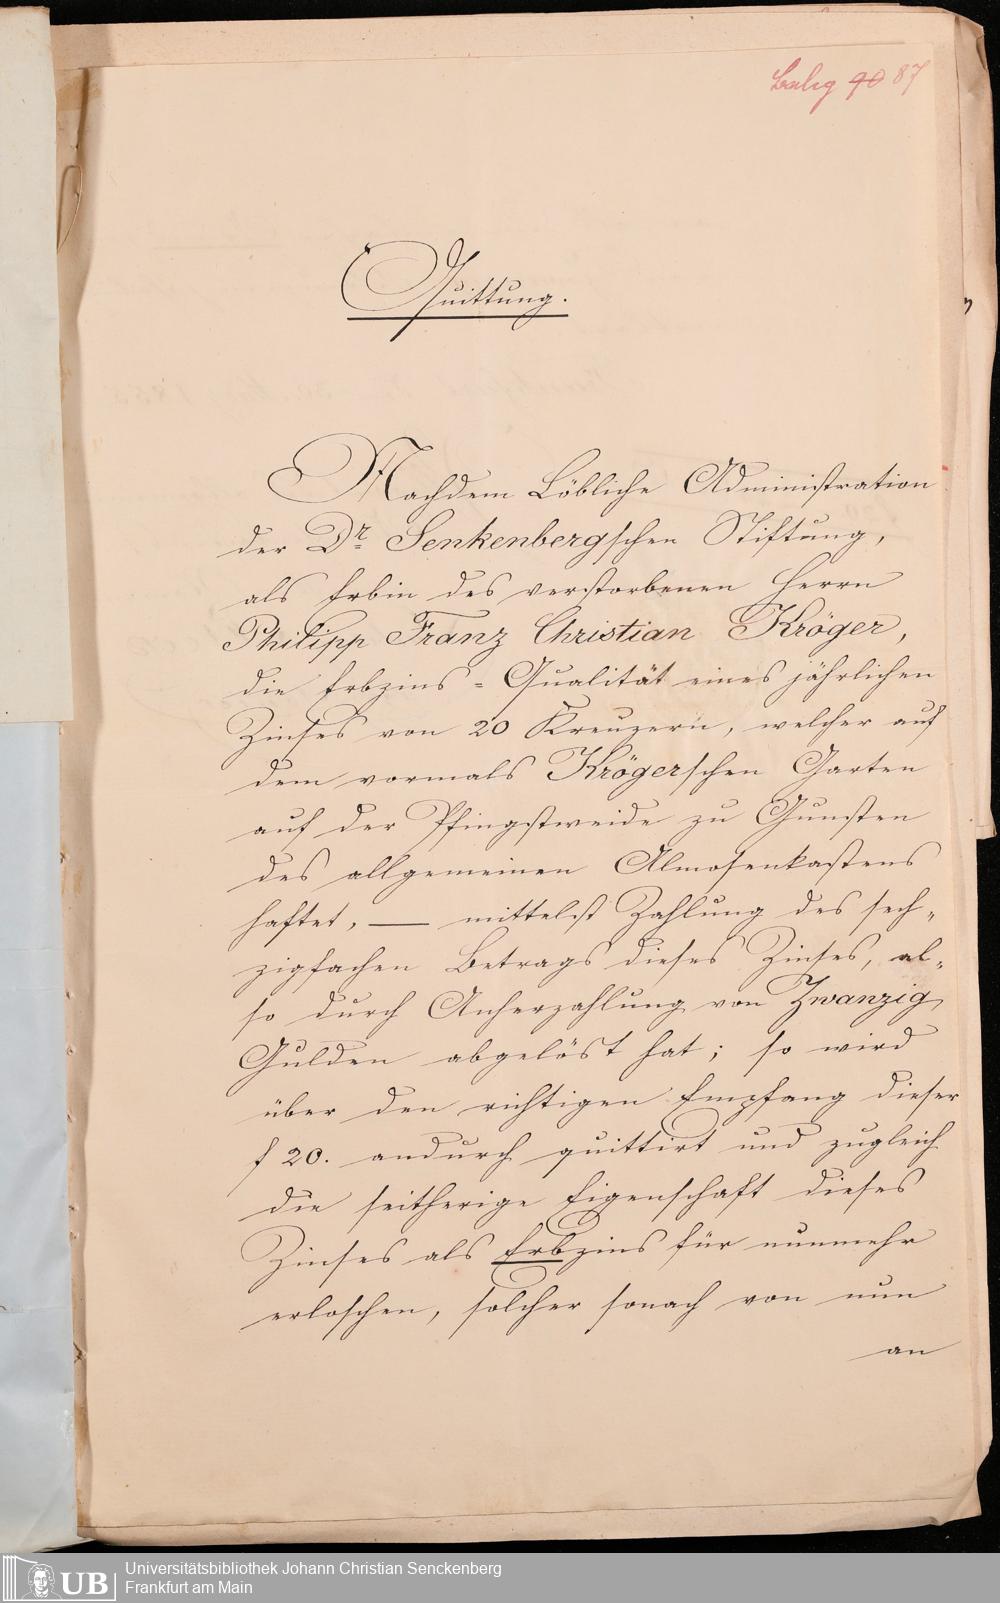 87
Quittung.
Nachdem Löbliche Administration
der Dr. Senkenbergschen Stiftung,
als Erbin des verstorbenen Herrn
Philipp Franz Christian Kröger,
die Erbzins-Qualität eines jährlichen
Zinses von 20 Kreuzern, welcher auf
dem vormals Krögerschen Garten
auf der Pfingstweide zu Gunsten
des allgemeinen Almosenkastens
haftet, — mittelst Zahlung des sech-
zigfachen Betrags dieses Zinses, al-
so durch Anherzahlung von Zwanzig
Gulden abgelöst hat; so wird
über den richtigen Empfang dieser
f 20. andurch quittirt und zugleich
die seitherige Eigenschaft dieses
Zinses als Erbzins für nunmehr
erloschen, solcher sonach von nun
an
UB Universitätsbibliothek Johann Christian Senckenberg
Frankfurt am Main